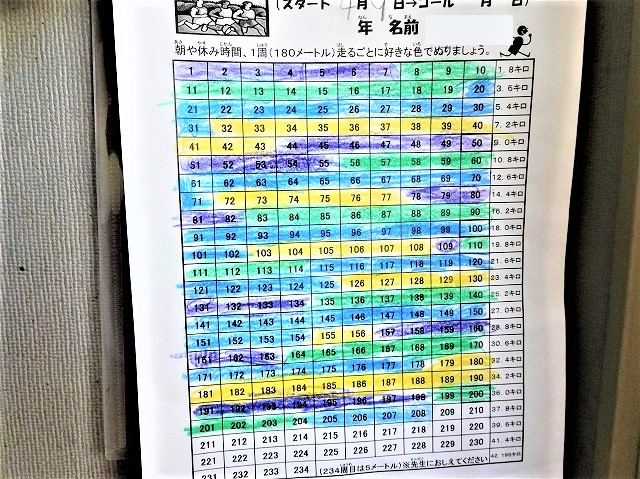 (スタート 4月9日→ゴール 月 日)
年 名前
朝や休み時間、1周(180メートル)走るごとに好きな色でぬりましょう。
1 2 3 4 5 6 7 8 9 10 1.8キロ
11 12 13 14 15 16 17 18 19 20 3.6キロ
21 22 23 24 25 26 27 28 29 30 5.4キロ
31 32 33 34 35 36 37 38 39 40 7.2キロ
41 42 43 44 45 46 47 48 49 50 9.0キロ
51 52 53 54 55 56 57 58 59 60 10.8キロ
61 62 63 64 65 66 67 68 69 70 12.6キロ
71 72 73 74 75 76 77 78 79 80 14.4キロ
81 82 83 84 85 86 87 88 89 90 16.2キロ
91 92 93 94 95 96 97 98 99 100 18.0キロ
101 102 103 104 105 106 107 108 109 110 19.8キロ
111 112 113 114 115 116 117 118 119 120 21.6キロ
121 122 123 124 125 126 127 128 129 130 23.4キロ
131 132 133 134 135 136 137 138 139 140 25.2キロ
141 142 143 144 145 146 147 148 149 150 27.0キロ
151 152 153 154 155 156 157 158 159 160 28.8キロ
161 162 163 164 165 166 167 168 169 170 30.6キロ
171 172 173 174 175 176 177 178 179 180 32.4キロ
181 182 183 184 185 186 187 188 189 190 34.2キロ
191 192 193 194 195 196 197 198 199 200 36.0キロ
201 202 203 204 205 206 207 208 209 210 37.8キロ
211 212 213 214 215 216 217 218 219 220 39.6キロ
221 222 223 224 225 226 227 228 229 230 41.4キロ
231 232 233 234 (234周目は5メートル)※先生におしえてください 42.195キロ